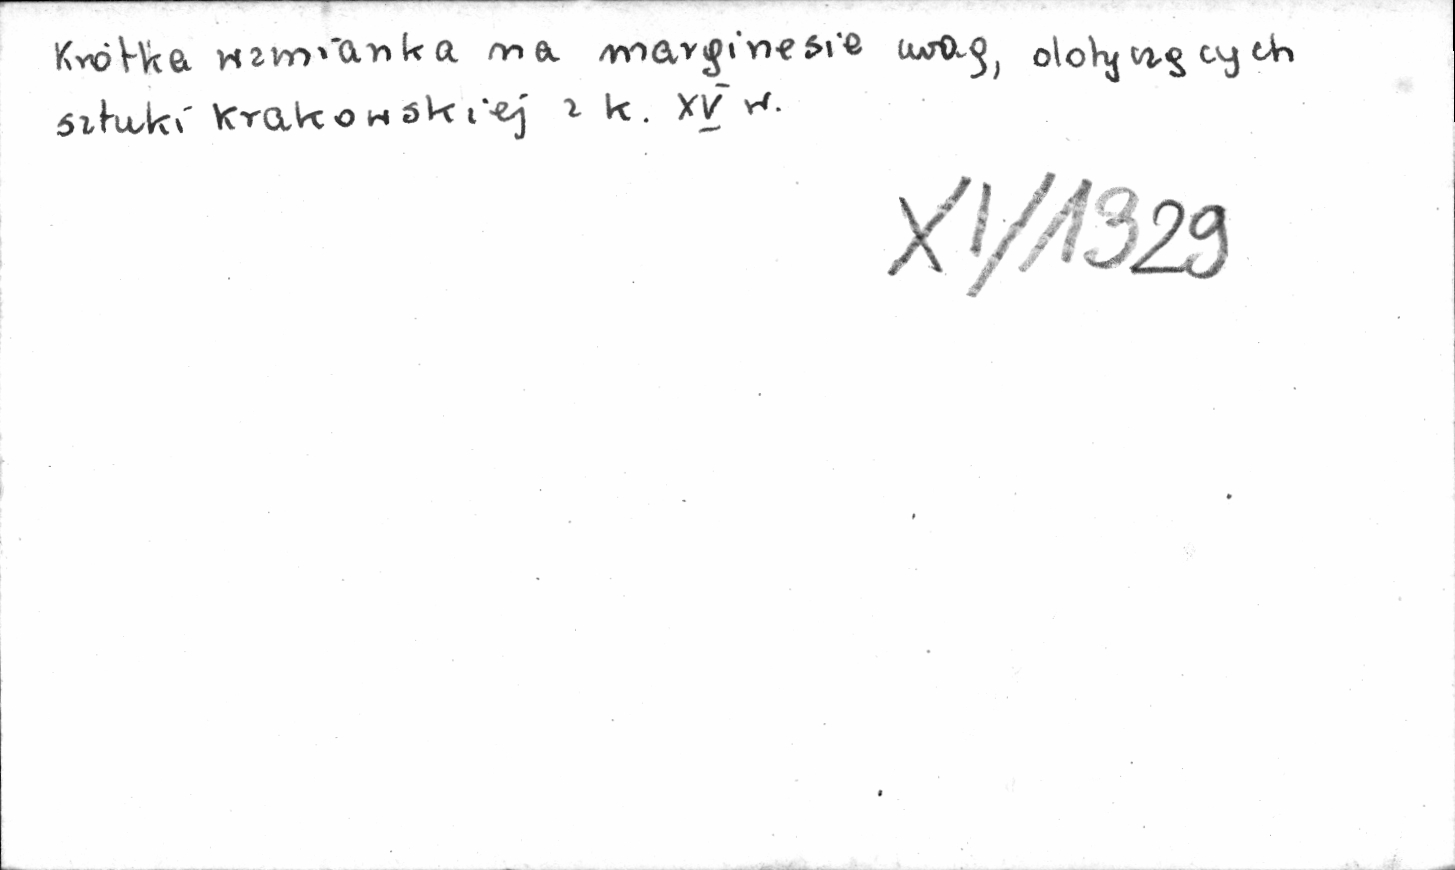 Krótka wzmianka na marginesie uwag, dotyczących
sztuki krakowskiej z k. XV w.
XV/1329